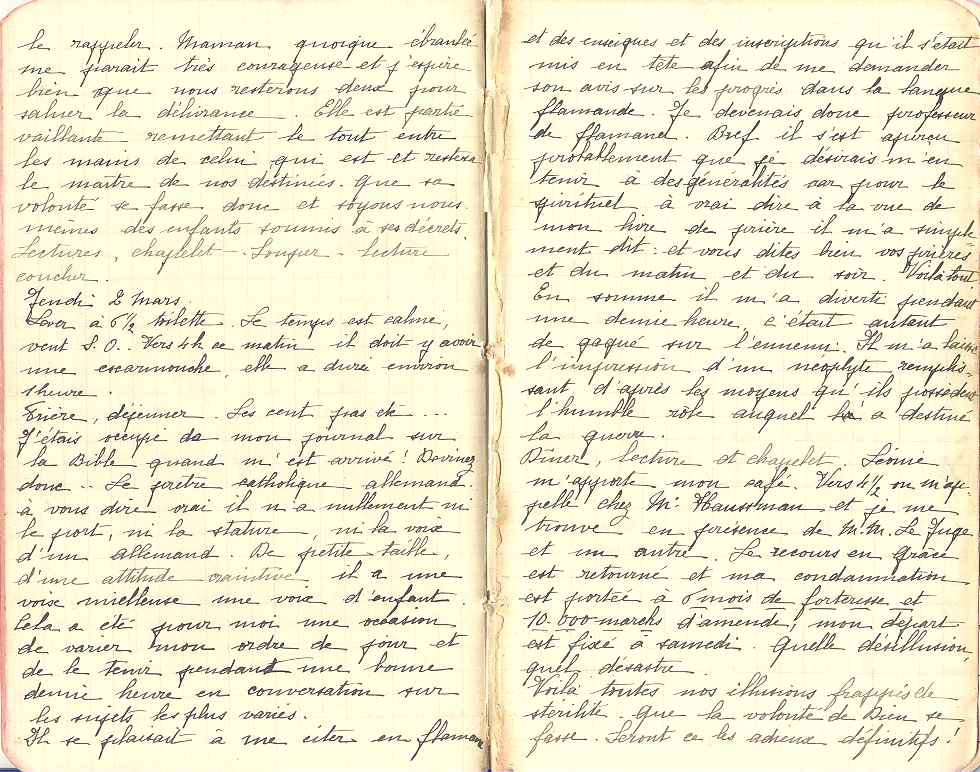 le rappeler. Maman quoique ébranlée
me parait très courageuse et j'espère
bien que nous resterons deux pour
saluer la délivrance. Elle est partie
vaillante remettant le tout entre
les mains de celui qui est et restera
le maître de nos destinées. Que sa
volonté se fasse donc et soyons nous
mêmes des enfants soumis à ses décrets.
Lectures, chapelet - Souper - lecture
coucher.
Jeudi 2 Mars.
Lever à 6½ toilette. Le temps est calme,
vent S.O. Vers 4h ce matin il doit y avoir
une escarmouche, elle a durée environ
1 heure.
Prière, déjeuner. Les cent pas etc ...
J'étais occupé de mon journal sur
la Bible quand m'est arrivé! Devinez
donc .. Le prêtre catholique allemand
à vous dire vrai il n'a nullement ni
le port, ni la stature, ni la voix
d'un allemand. De petite taille,
d'une attitude craintive il a une
voix mielleuse une voix d'enfant.
Cela a été pour moi une occasion
de varier mon ordre de jour et
de le tenir pendant une bonne
demie heure en conversation sur
les sujets les plus variés.
Il se plaisait à me citer en flamand
et des enseignes et des inscriptions qu'il s'était
mis en tête afin de me demander
son avis sur les progrès dans la langue
flamande. Je devenais donc professeur
de flamand. Bref il s'est aperçu
probablement que je désirais m'en
tenir à des généralités car pour le
spirituel à vrai dire à la vue de
mon livre de prière il m'a simple
ment dit: et vous dites bien vos prières
et du matin et du soir. Voilà tout
En somme il m'a diverti pendant
une demie heure, c'était autant
de gagné sur l'ennemi. Il m'a laissé
l'impression d'un néophyte remplis-
sant d'après les moyens qu'ils possèdent
l'humble rôle auquel la destine
la guerre.
Dîner, lecture et chapelet. Léonie
m'apporte mon café. Vers 4½ on m'ap
pelle chez Mr Haussman et je me
trouve en présence de M.M. Le Juge
et un autre. Le recours en Grâce
est retourné et ma condamnation
est portée à 6 mois de forteresse et
10.000 marks d'amende, mon départ
est fixé à samedi. Quelle désillusion,
quel désastre.
Voilà toutes nos illusions frappés de
stérilité. Que la volonté de Dieu se
fasse. Seront ce les adieux définitifs!